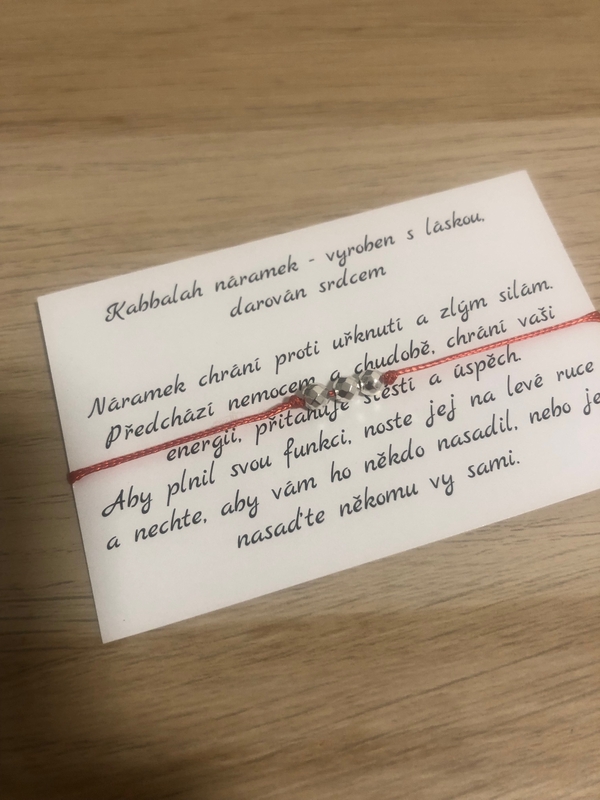 Kabbalah náramek - vyroben s láskou,
darován srdcem
Náramek chrání proti uřknutí a zlým silám.
Předchází nemocem a chudobě, chrání vaši
energii, přitahuje štěstí a úspěch.
Aby plnil svou funkci, noste jej na levé ruce
a nechte, aby vám ho někdo nasadil, nebo je
nasaďte někomu vy sami.